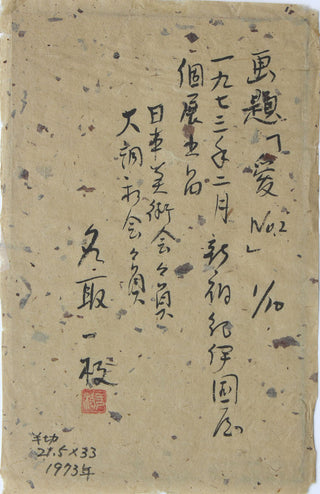 画題「愛 No2」 1/10
一九七三年二月 新宿紀伊國屋
個展出品
日本美術会々員
大調和会々員
名取一
21.5×33
1973年